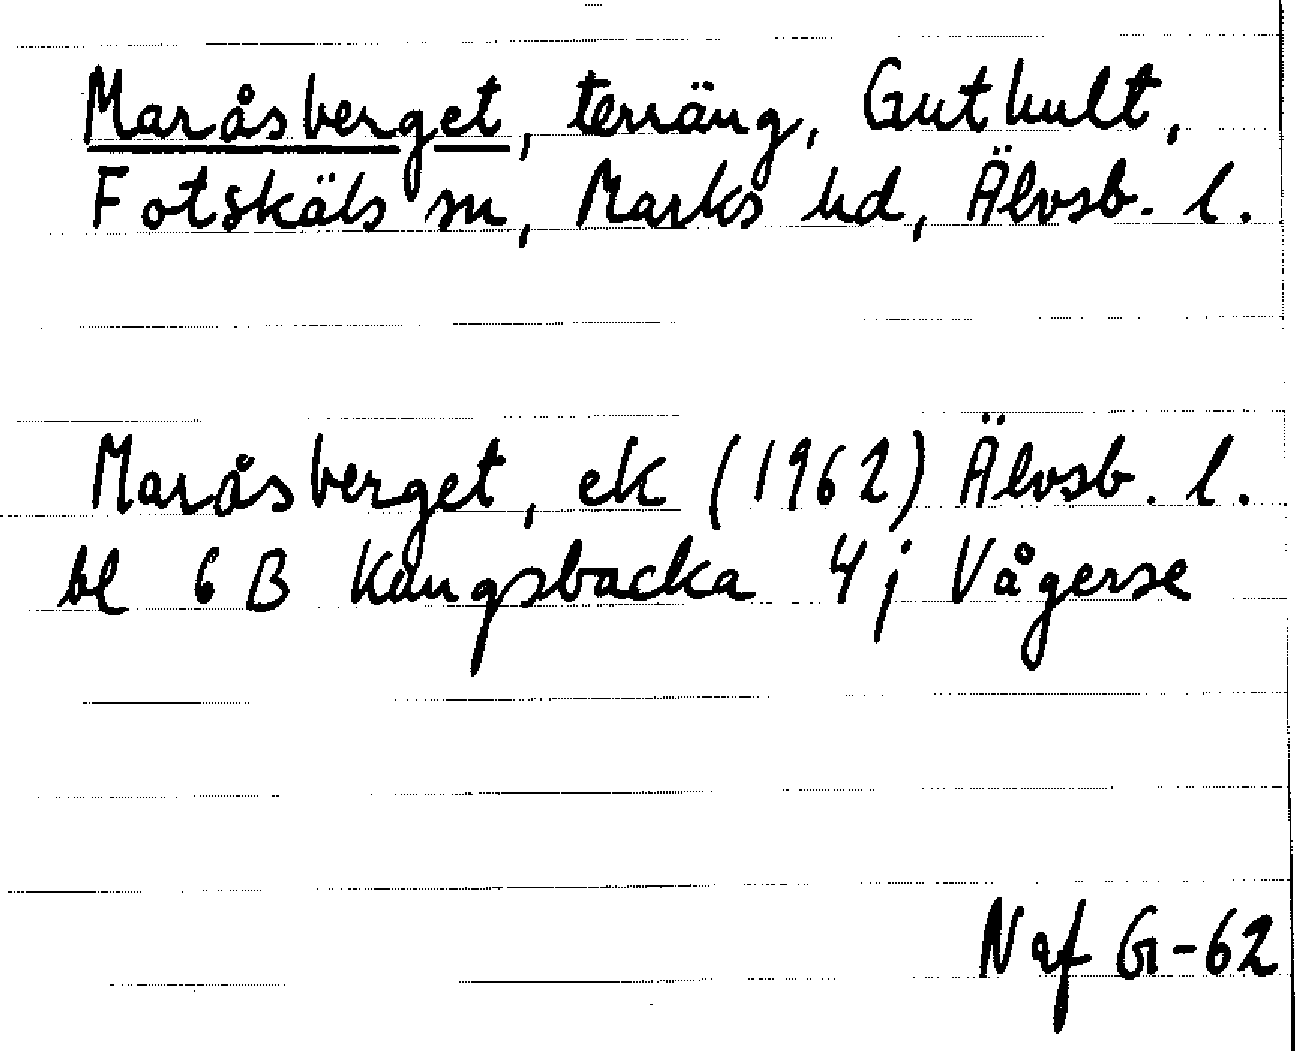 Maråsberget, terräng, Guthult,
Fotskäls sn, Marks hd, Älvsb. l.
Maråsberget, ek (1962) Älvsb. l.
bl 6 B Kungsbacka 4 j Vågerse
Naf G-62